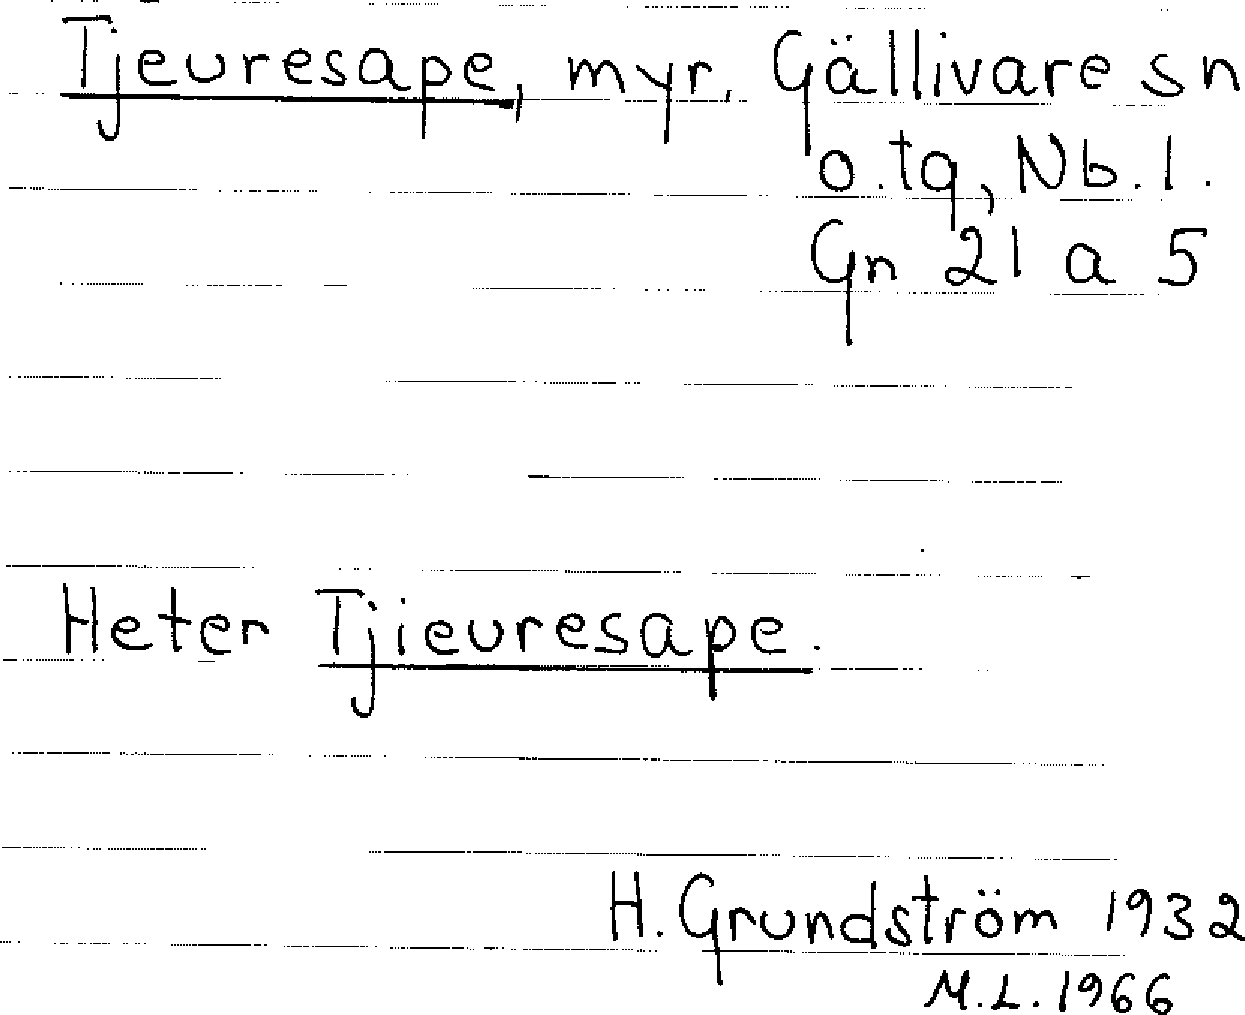 Tjeuresape, myr, Gällivare sn
o. tg, Nb. l.
Gn 21 a 5
Heter Tjieuresape.
H. Grundström 1932
M.L. 1966